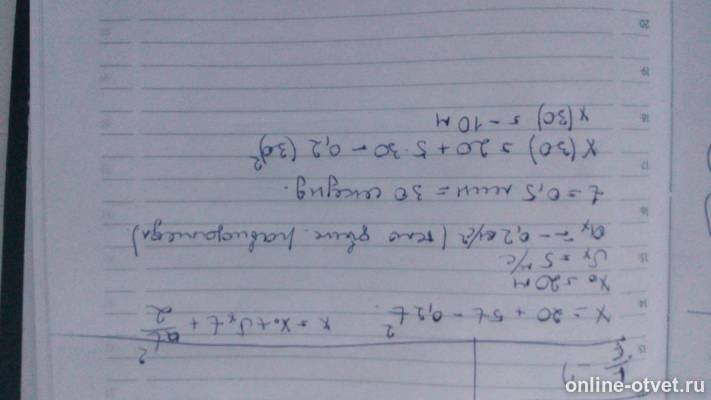 x = 20 + 5t - 0,2t² . x = x₀ + υₓt + at²/2
x₀ = 20 м
υₓ = 5 м/с
aₓ = - 0,2 м/с² (тело движ.
t = 0,5 мин = 30 секунд.
x(30) = 20 + 5·30 - 0,2(30)²
x(30) = - 10 м
13
14
15
16
17
18
19
20
online-otvet.ru